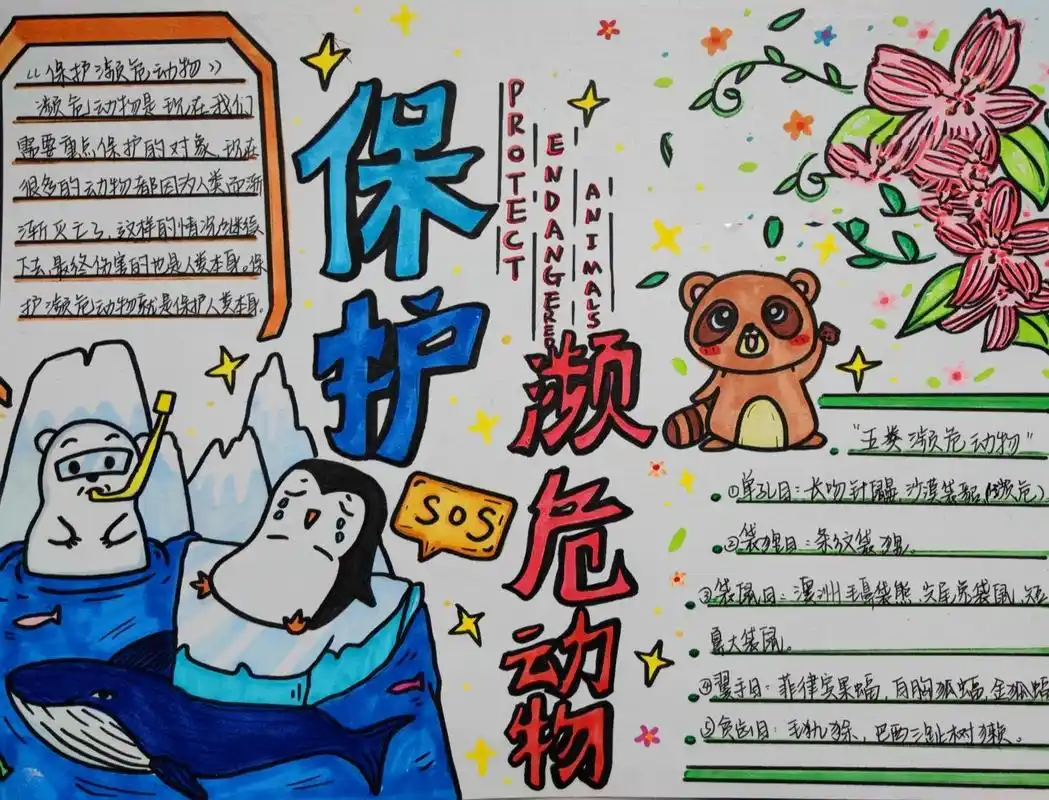 《保护濒危动物》
濒危动物是现在我们
需要重点保护的对象，现在
很多的动物都因为人类而渐
渐灭亡了，这样的情况继续
下去，最终伤害的也是人类本身。保
护濒危动物就是保护人类本身。
保护
濒危动物
PROTECT
ENDANGERED
ANIMALS
SOS
"五类濒危动物"
①单孔目：长吻针鼹 沙漠袋貂（濒危）
②袋狸目：条纹袋狸。
③袋鼠目：澳洲毛鼻袋熊，尖尾兔袋鼠，短
鼻大袋鼠。
④翼手目：菲律宾果蝠，白胸狐蝠，金狐蝠
⑤贫齿目：毛犰狳、巴西三趾树獭。